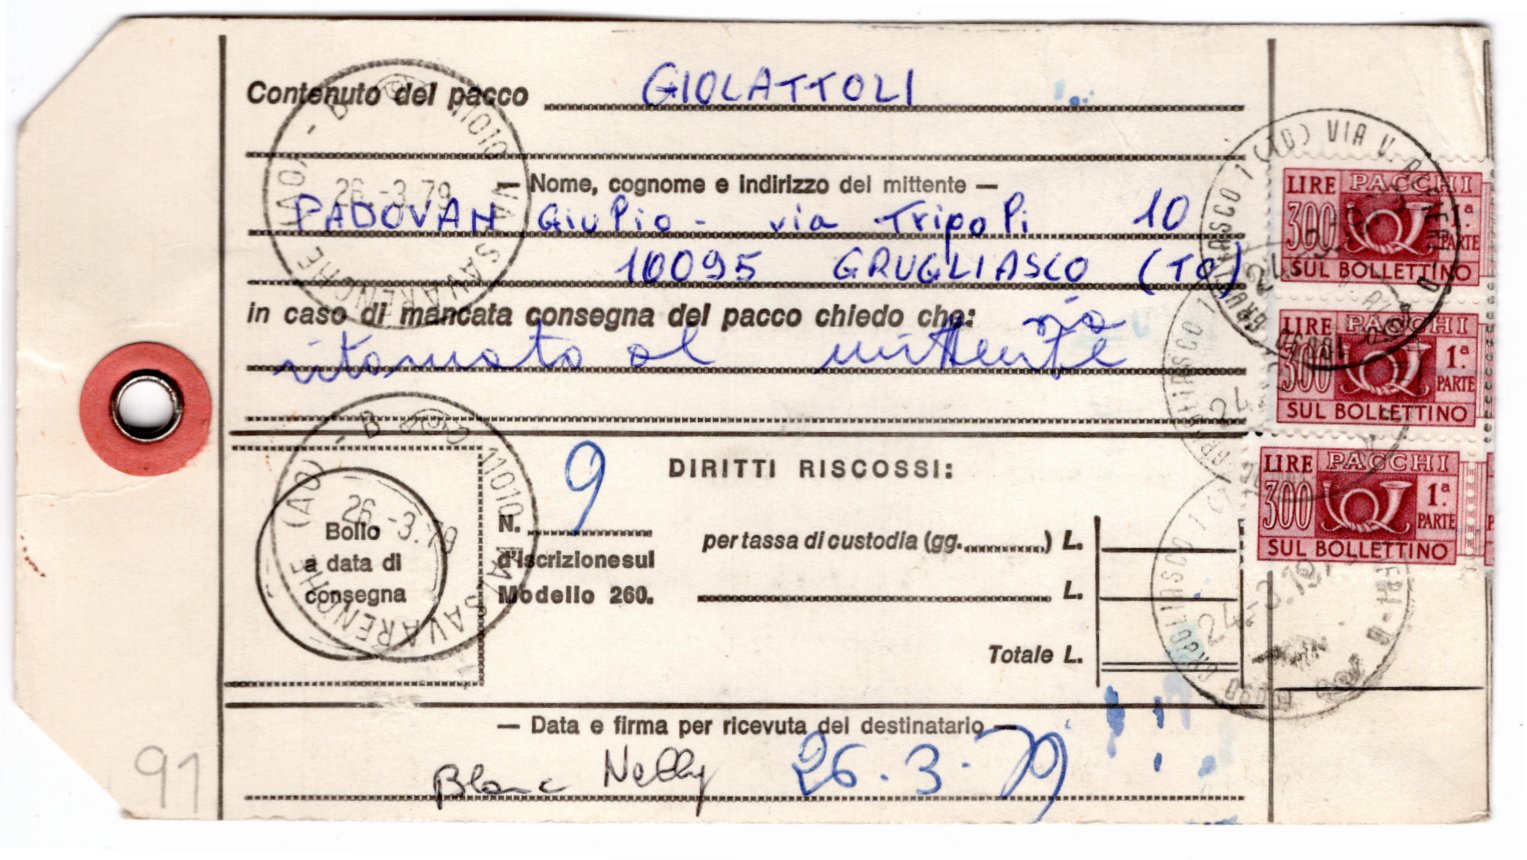 Contenuto del pacco GIOLATTOLI
Nome, cognome e indirizzo del mittente —
PADOVAN GIULIO - via TRIPOLI 10
10095 GRUGLIASCO (TO)
in caso di mancata consegna del pacco chiedo che:
ritornato al mittente
DIRITTI RISCOSSI:
N. 9
d'iscrizione sul
Modello 260.
per tassa di custodia (gg. ) L.
L.
Totale L.
Bollo
a data di
consegna
— Data e firma per ricevuta del destinatario —
Blanc Nelly 26.3.79
91
11010 VALSAVARENCHE (AO) - B
26.-3.79
11010 VALSAVARENCHE (AO) - B
26.-3.79
LIRE PACCHI
300 1ª PARTE
SUL BOLLETTINO
LIRE PACCHI
300 1ª PARTE
SUL BOLLETTINO
LIRE PACCHI
300 1ª PARTE
SUL BOLLETTINO
GRUGLIASCO 1 (TO) VIA
24.-3.197